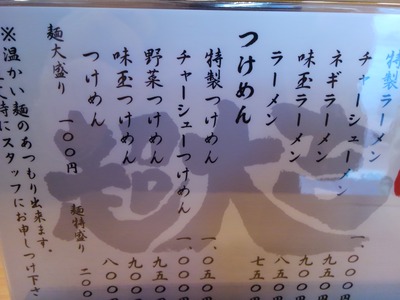 特製ラーメン
チャーシューメン 一、〇〇
ネギラーメン 九〇〇
味玉ラーメン 八五〇
ラーメン 七五〇
つけめん
特製つけめん 一、〇五〇
チャーシューつけめん 一、〇五〇
野菜つけめん 九五〇
味玉つけめん 九〇〇
つけめん 八〇〇
麺大盛り 一〇〇円 麺特盛り 二〇〇
※温かい麺のあつもり出来ます。
文時にスタッフにお申しつけ下さ